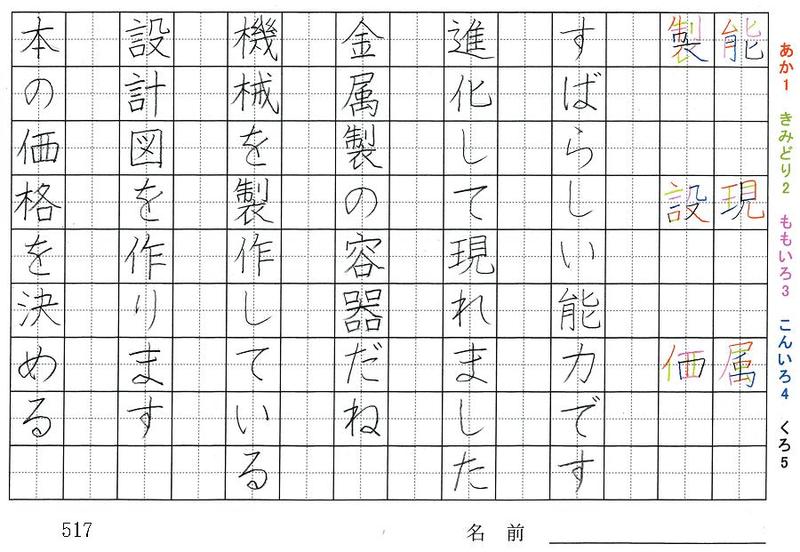 あか1 きみどり2 ももいろ3 こんいろ4 くろ5
能 現 属
製 設 価
すばらしい能力です
進化して現れました
金属製の容器だね
機械を製作している
設計図を作ります
本の価格を決める
517
名前